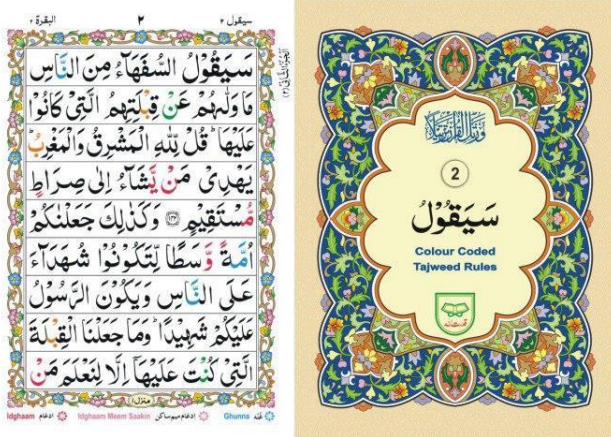 البقرة ٢
٢
سيقول ٢
سَيَقُوۡلُ السُّفَهَآءُ مِنَ النَّاسِ
مَا وَلّٰٮهُمۡ عَنۡ قِبۡلَتِهِمُ الَّتِىۡ كَانُوۡا
عَلَيۡهَا ؕ قُلۡ لِّلّٰهِ الۡمَشۡرِقُ وَالۡمَغۡرِبُ ؕ
يَهۡدِىۡ مَنۡ يَّشَآءُ اِلٰى صِرَاطٍ
مُّسۡتَقِيۡمٍ ﴿۱۴۲﴾ وَكَذٰلِكَ جَعَلۡنٰكُمۡ
اُمَّةً وَّسَطًا لِّتَکُوۡنُوۡا شُهَدَآءَ
عَلَى النَّاسِ وَيَكُوۡنَ الرَّسُوۡلُ
عَلَيۡكُمۡ شَهِيۡدًا ؕ وَمَا جَعَلۡنَا الۡقِبۡلَةَ
الَّتِىۡ كُنۡتَ عَلَيۡهَآ اِلَّا لِنَعۡلَمَ مَنۡ
منزل ١
غُنّہ Ghunna
ادغام میم ساکن Idghaam Meem Saakin
ادغام Idghaam
وَرَتِّلِ الْقُرْآنَ تَرْتِيلًا
2
سَيَقُوۡلُ
Colour Coded
Tajweed Rules
قدرت اللہ